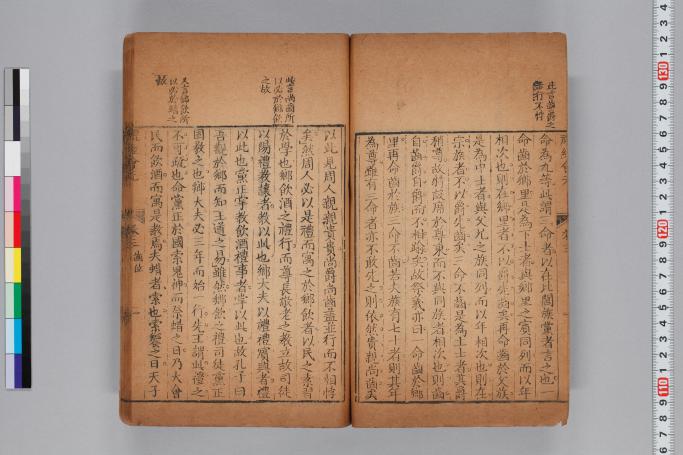 此言齒爵之
並行不悖
命為九等此謂一命者以在比閭族黨者言之也一
命齒於鄉里是為下士者與鄉里之賓同列而以年
相次也則在鄉里者不以爵先齒矣再命齒於父族
是為中士者與父兄之族同列而以年相次也則在
宗族者不以爵先齒矣三命不齒是為上士者其爵
稍尊故特設席於尊東而不與同族者相次也則齒
自齒爵自爵而不相踰矣故祭義亦曰一命齒於鄉
里再命齒於族三命不齒若夫族有七十者則其年
為尊雖有三命者亦不敢先之則依然貴親尚齒矣
此言尚齒所
以必於鄉飲
之故
以此見周人親親貴貴尚爵尚齒蓋並行而不相悖
矣然周人必以是禮而寓之於鄉飲者以民之孝皆
於學也鄉飲酒之禮行而尊長敬老之教立故司徒
以陽禮教讓者教以此也鄉大夫以禮禮賓與者禮
以此也黨正掌教飲酒禮事者掌以此也故孔子曰
吾觀於鄉而知王道之易雖然鄉飲之禮司徒黨正
固教之也鄉大夫必三年而始一行先王謂此禮之
不可疏也命黨正於國索鬼神而祭蜡之日乃大會
民而飲酒而寓是教焉夫蜡者索也索饗之日天子
又言鄉飲所
以必於蜡之
故